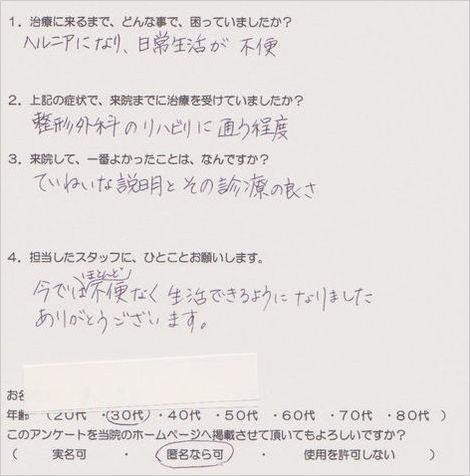 1．治療に来るまで、どんな事で、困っていましたか？
ヘルニアになり、日常生活が 不便
2．上記の症状で、来院までに治療を受けていましたか？
整形外科のリハビリに 通う程度
3．来院して、一番よかったことは、なんですか？
ていねいな説明とその診療の良さ
4．担当したスタッフに、ひとことお願いします。
ほとんど
今では不便なく 生活できるように なりました
ありがとうございます。
お名
年齢 （20代 ・30代）・40代 ・50代 ・60代 ・70代 ・80代 ）
このアンケートを当院のホームページへ掲載させて頂いてもよろしいですか？
（ 実名可 ・ 匿名なら可 ・ 使用を許可しない ）